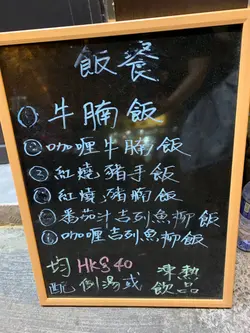 飯餐
① 牛腩飯
② 咖喱牛腩飯
③ 紅燒豬手飯
④ 紅燒豬腩飯
⑤ 番茄汁吉列魚柳飯
⑥ 咖喱吉列魚柳飯
均 HK$40 凍熱
配例湯或飲品